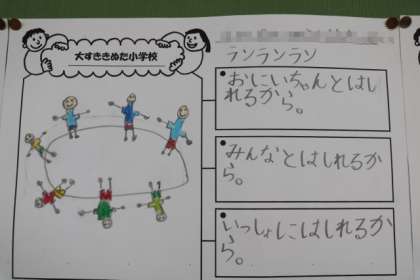 大すききぬた小学校
ランランラン
おにいちゃんとはし
れるから。
みんなとはしれるか
ら。
いっしょにはしれるか
ら。